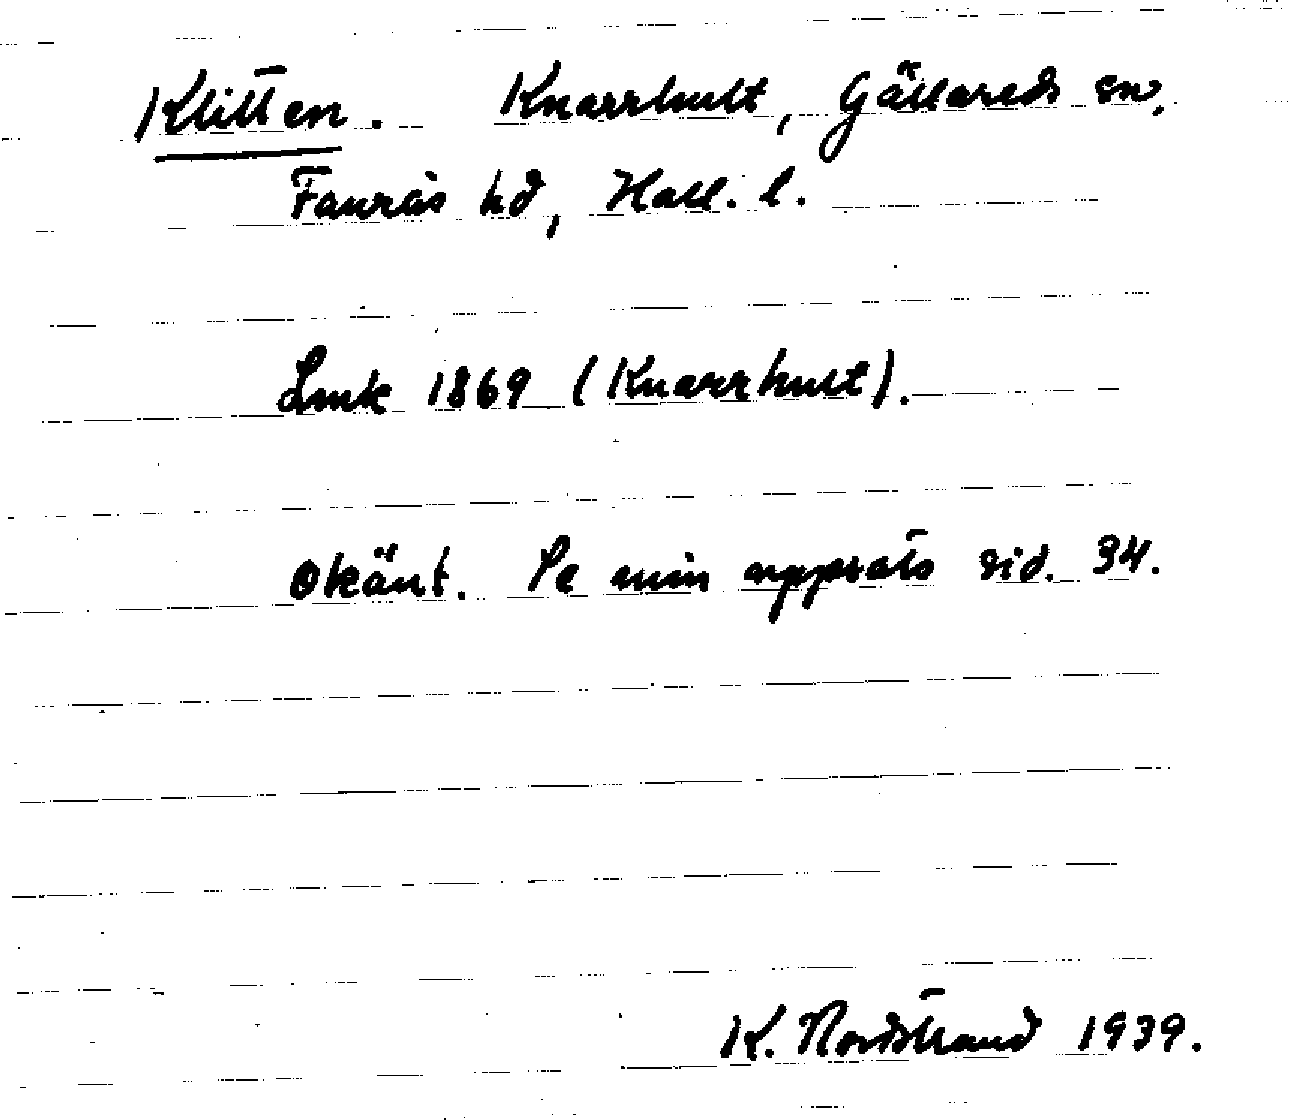 Klitten. Knarrhult, Gällareds sn,
Faurås hd, Hall. l.
Lmk 1869 (Knarrhult).
Okänt. Se min uppsats sid. 34.
K. Nordstrand 1939.